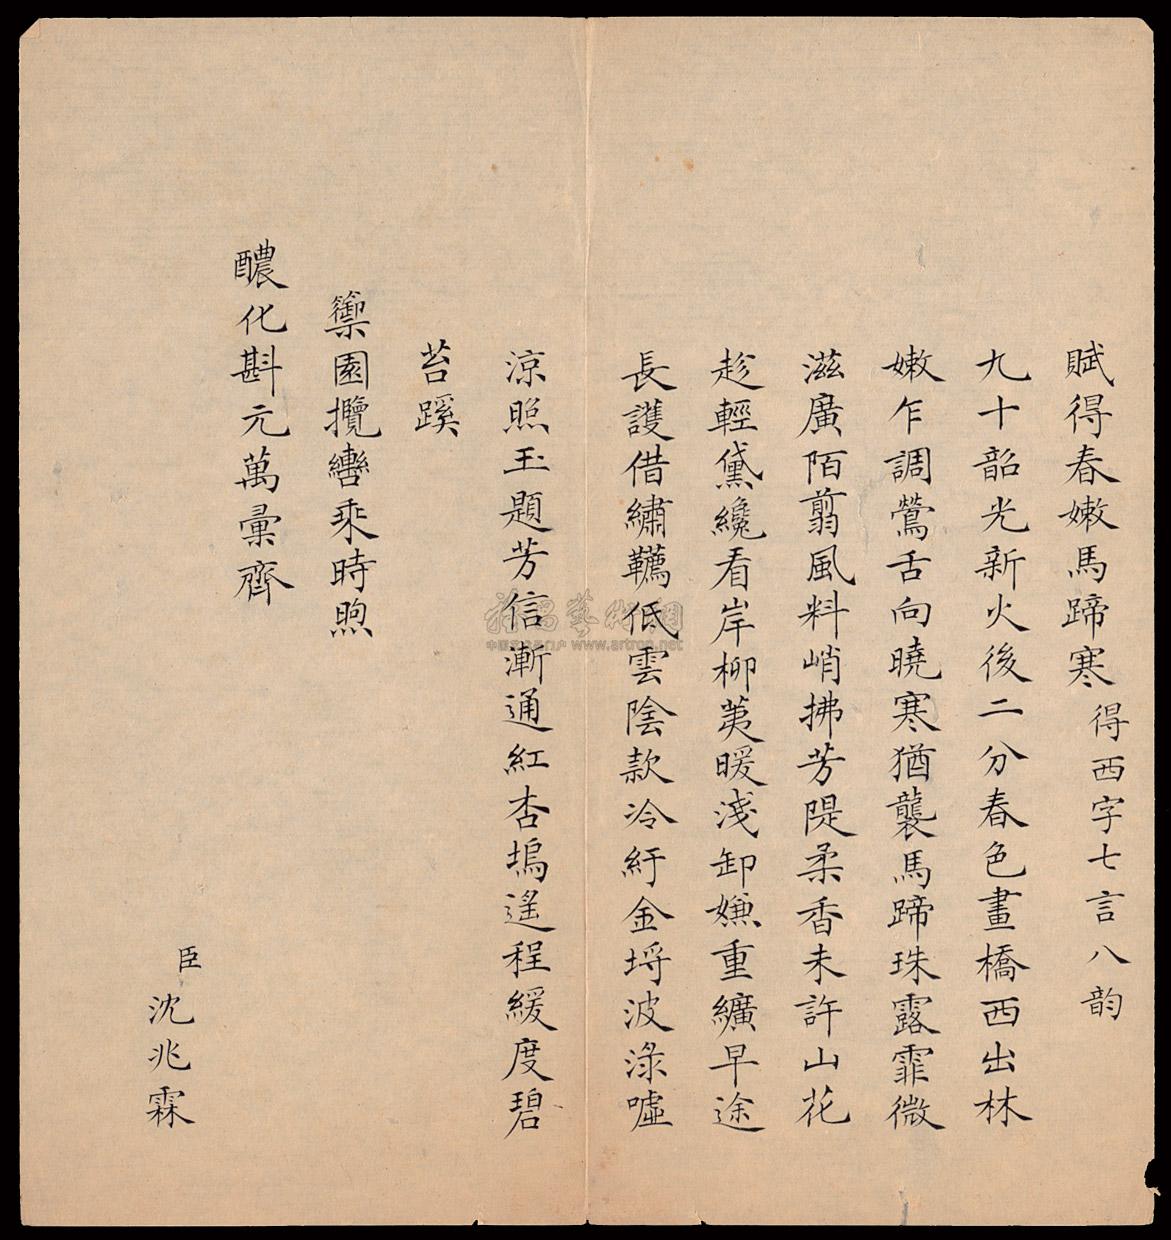 賦得春嫩馬蹄寒得西字七言八韵
九十韶光新火後二分春色畫橋西出林
嫩乍調鶯舌向曉寒猶襲馬蹄珠露霏微
滋廣陌翦風料峭拂芳隄柔香未許山花
趁輕黛纔看岸柳荑暖淺卸嫌重纊早途
長護借繡韉低雲陰款冷紆金埒波淥噓
涼照玉題芳信漸通紅杏塢遙程緩度碧
苔蹊
籞園攬轡乘時煦
醲化斟元萬彙齊
臣沈兆霖
www.artron.net